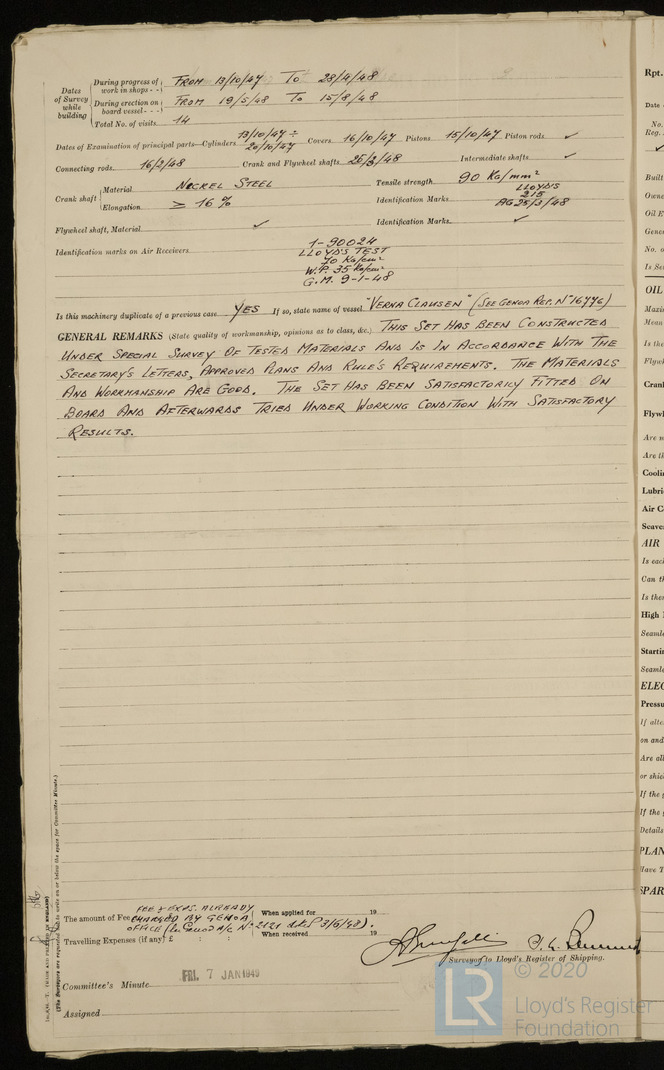 Dates of Survey while building
During progress of work in shops - - FROM 13/10/47 TO 28/4/48
During erection on board vessel - - - FROM 19/5/48 TO 15/8/48
Total No. of visits 14
Dates of Examination of principal parts—Cylinders 13/10/47 ÷ 20/10/47 Covers 16/10/47 Pistons 15/10/47 Piston rods ✓
Connecting rods 16/2/48 Crank and Flywheel shafts 25/3/48 Intermediate shafts ✓
Crank shaft Material NOCKEL STEEL Tensile strength 90 Kg/mm²
Elongation ≥ 16 % Identification Marks LLOYD'S 215 AG 25/3/48
Flywheel shaft, Material ✓ Identification Marks ✓
Identification marks on Air Receivers 1-90024
LLOYD'S TEST
70 Kg/cm²
W.P. 35 Kg/cm²
G.M. 9-1-48
Is this machinery duplicate of a previous case YES If so, state name of vessel "VERNA CLAUSEN" (SEE GENOA REP. Nº 16776)
GENERAL REMARKS (State quality of workmanship, opinions as to class, &c.) THIS SET HAS BEEN CONSTRUCTED
UNDER SPECIAL SURVEY OF TESTED MATERIALS AND IS IN ACCORDANCE WITH THE
SECRETARY'S LETTERS, APPROVED PLANS AND RULE'S REQUIREMENTS. THE MATERIALS
AND WORKMANSHIP ARE GOOD. THE SET HAS BEEN SATISFACTORILY FITTED ON
BOARD AND AFTERWARDS TRIED UNDER WORKING CONDITION WITH SATISFACTORY
RESULTS.
FEE & EXPS. ALREADY
The amount of Fee CHARGED BY GENOA When applied for 19
OFFICE Nº 2121 3/6/48).
Travelling Expenses (if any) £ : : When received 19
Surveyor to Lloyd's Register of Shipping.
FRI. 7 JAN 1949
Committee's Minute
Assigned
(The Surveyors are requested not to write on or below the space for Committee Minute.)
© 2020
LR
Lloyd's Register
Foundation
Rpt.
Date
No.
Reg.
Built
Owne
Oil E
Gener
No. o
Is Se
OIL
Maxim
Mean
Is the
Flywh
Crank
Flywh
Are m
Are th
Coolin
Lubri
Air C
Scave
AIR
Is eac
Can th
Is ther
High
Seamle
Startin
Seamle
ELEC
Pressu
If alte
on and
Are all
or shie
If the g
If the g
Details
PLAN
Have T
SPAR